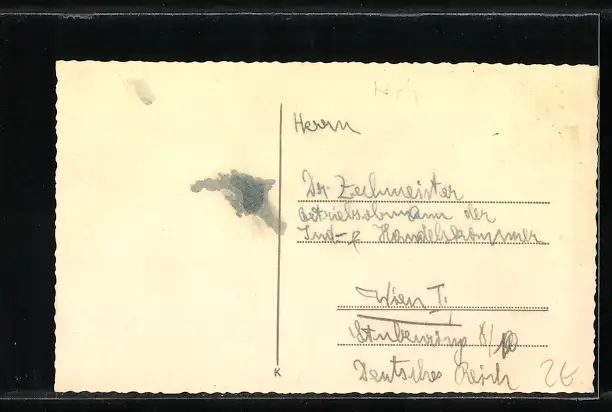 Herrn
Dr. Zechmeister
Betriebsobmann der
Ind- & Handelskammer
Wien I.
Stubenring 8/10
Deutsches Reich
K